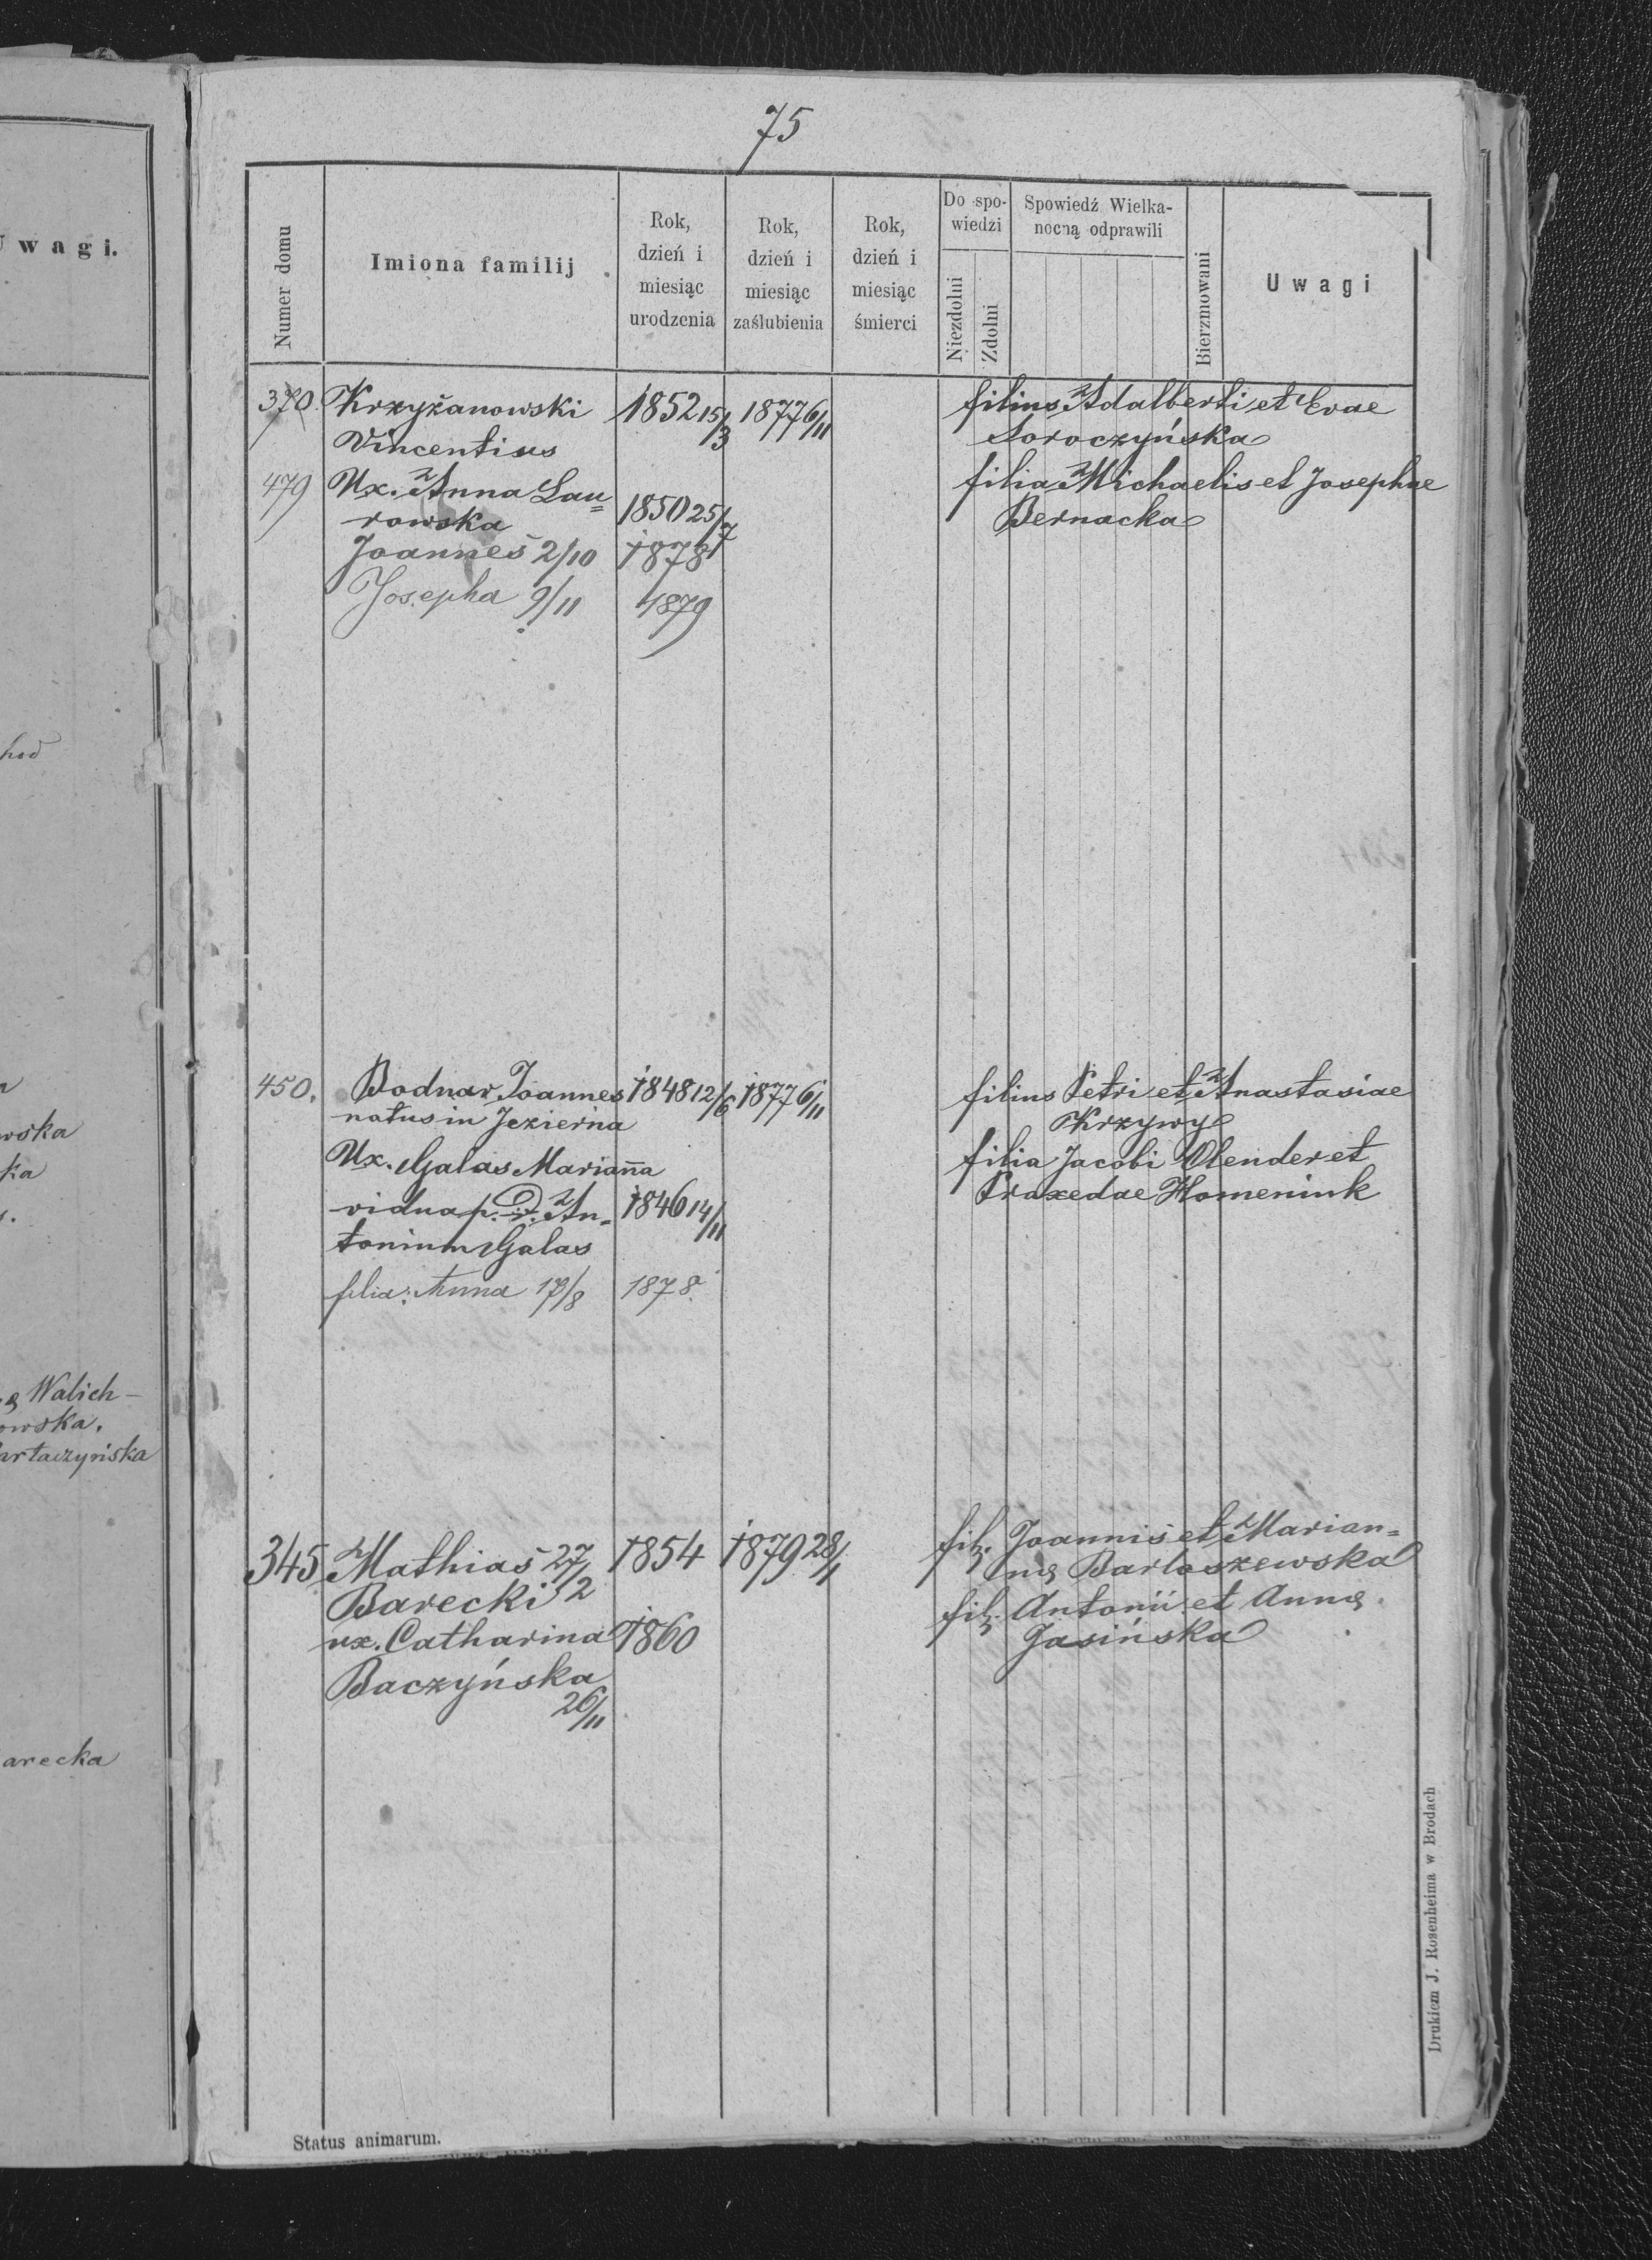 75
Uwagi.
Numer domu
Imiona familij
Rok, dzień i miesiąc urodzenia
Rok, dzień i miesiąc zaślubienia
Rok, dzień i miesiąc śmierci
Do spowiedzi
Niezdolni
Zdolni
Spowiedź Wielkanocną odprawili
Bierzmowani
Uwagi
370. Krzyżanowski 1852 15/3 1877 6/11 filius Adalberti et Evae
Vincentius Soroczyńska
479 Ux. Anna Lau= filia Michaelis et Josephae
rowska 1850 25/7 Bernacka
Joannes 2/10 1878
Josepha 9/11 1879
450. Bodnar Joannes 1848 12/6 1877 6/11 filius Petri et Anastasiae
natus in Jezierna Krzywy
Ux. Galas Marianna filia Jacobi Olender et
vidua p. d. An= 1846 14/11 Praxedae Homeniuk
tonium Galas
filia: Anna 17/8 1878
345 Mathias 27/2 1854 1879 28/1 fil. Joannis et Marian=
Barecki nę Bartoszewska
ux. Catharina 1860 fil. Antonii et Annę
Baczyńska Jasińska
26/11
hod
wska
ka
Walich-
owska.
artaczyńska
arecka
Status animarum.
Drukiem J. Rosenheima w Brodach